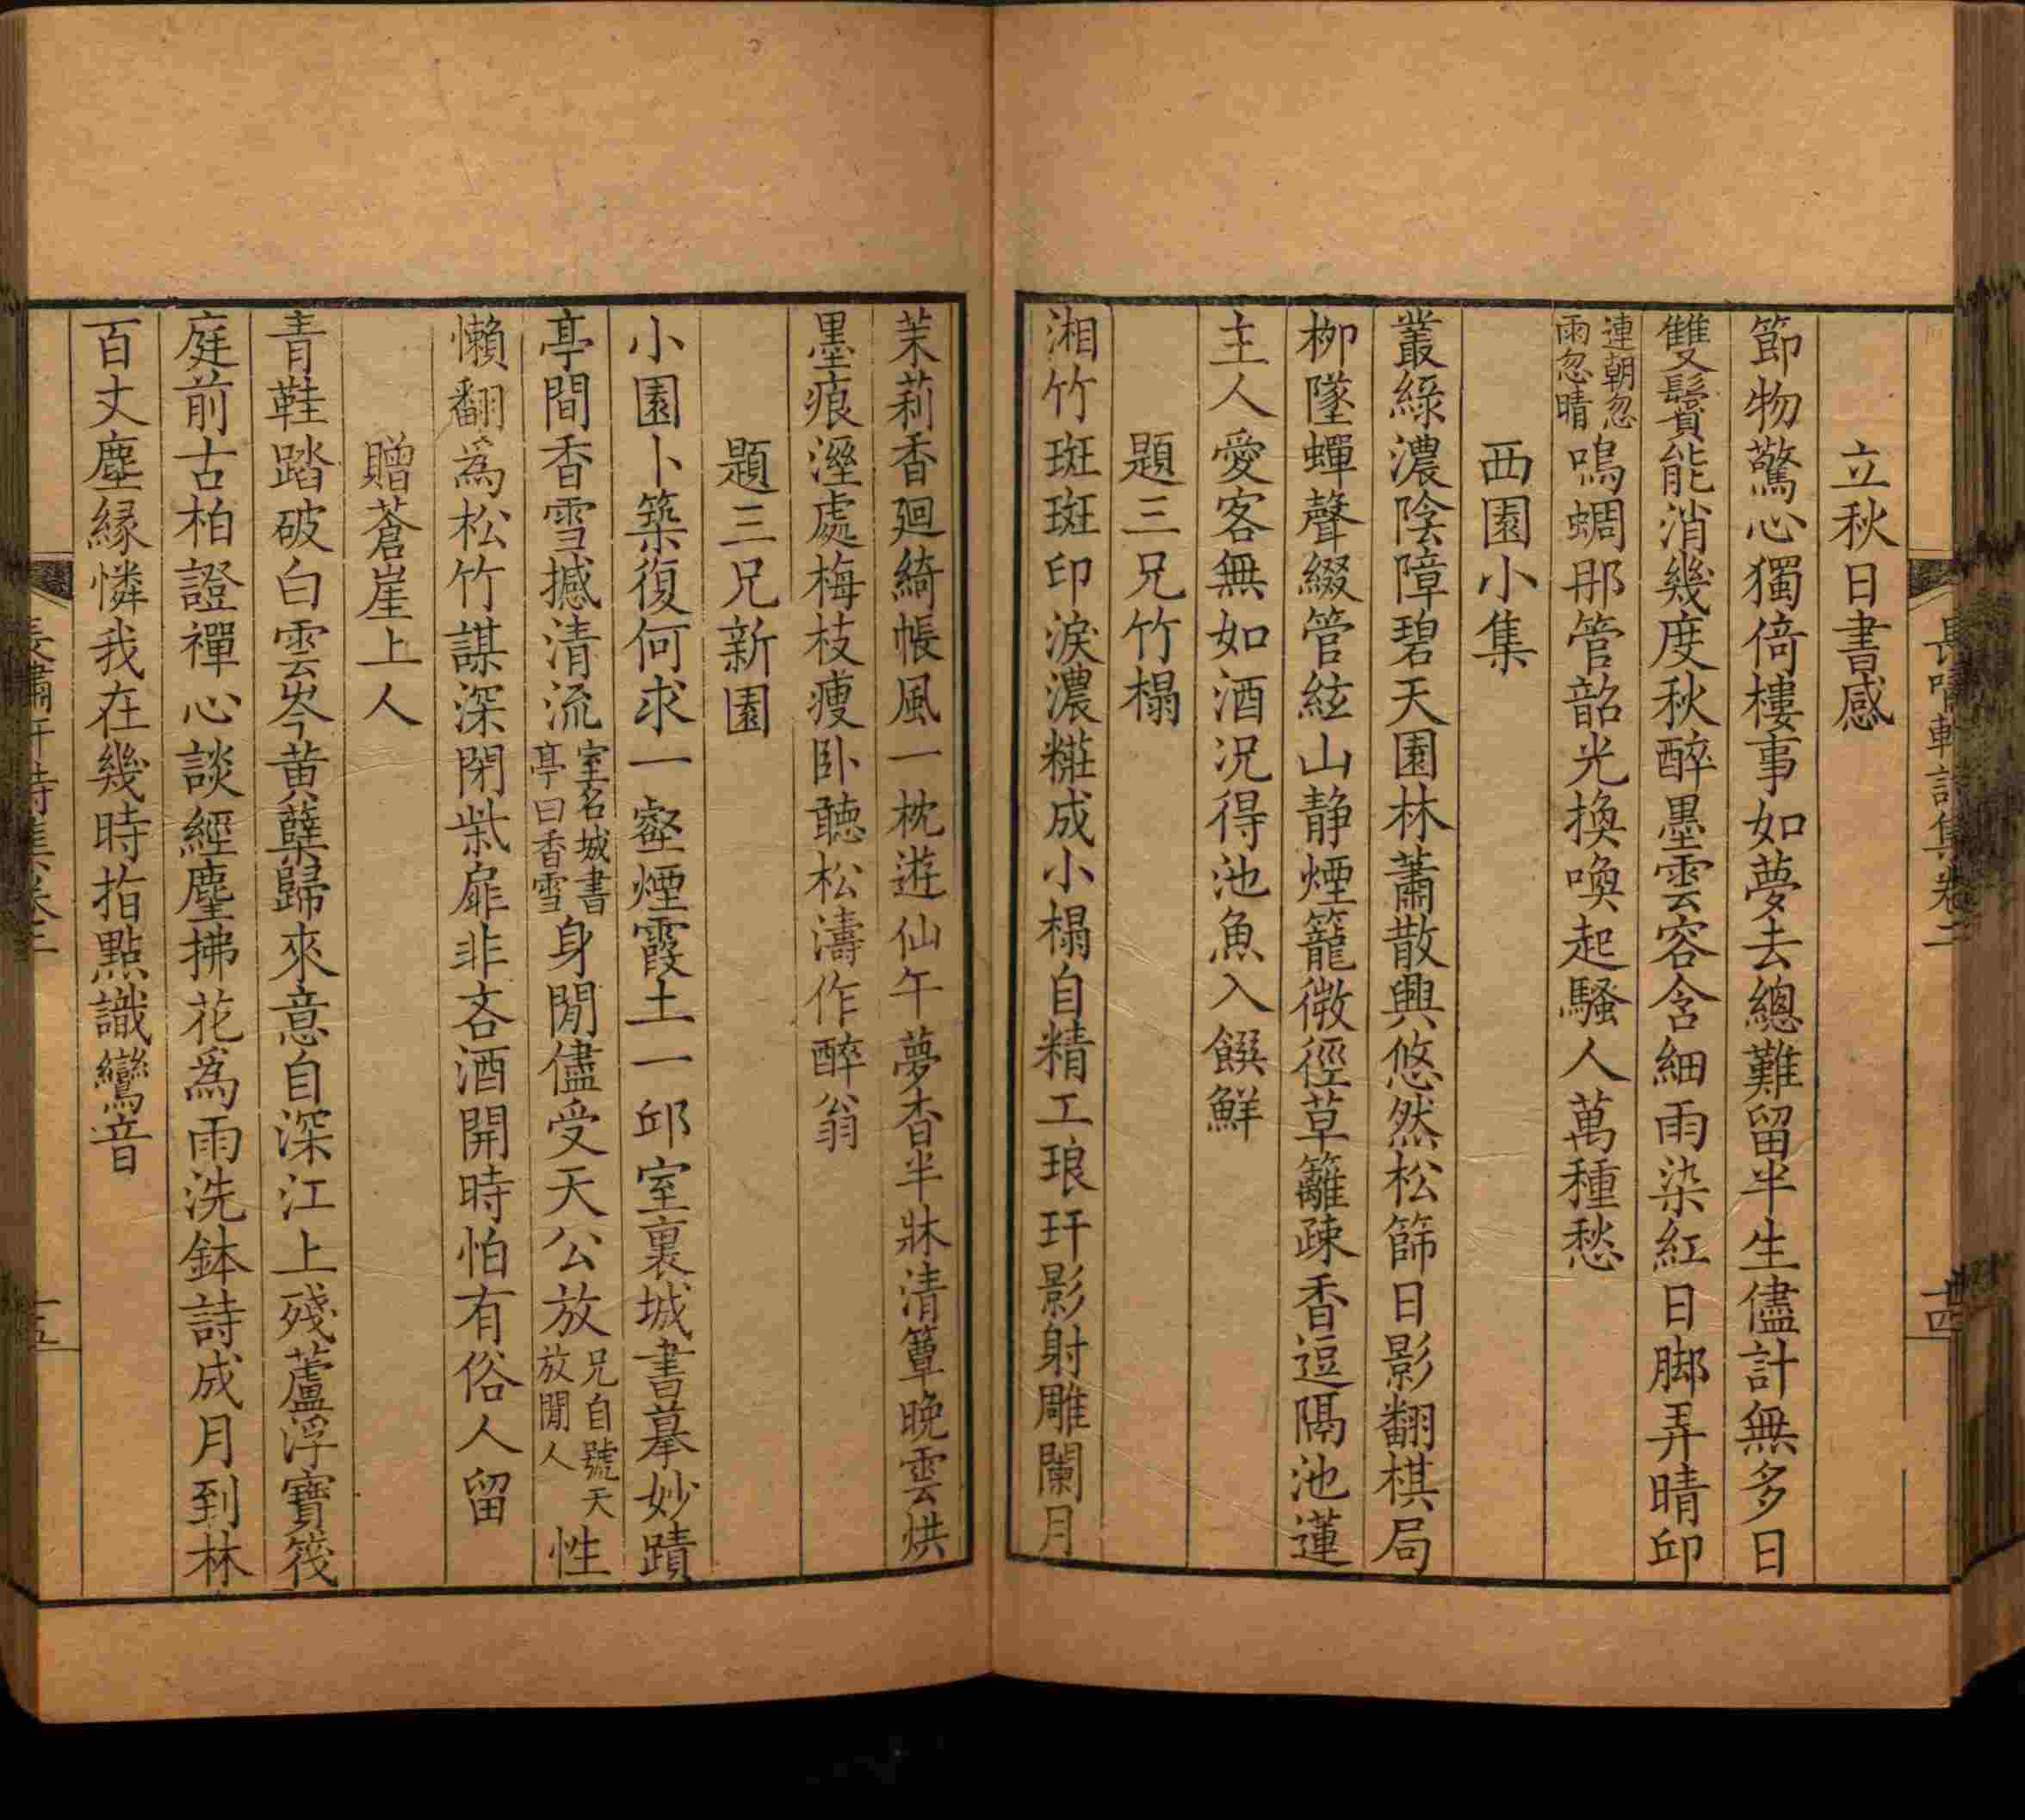 長嘯軒詩集卷二
十四
立秋日書感
節物驚心獨倚樓事如夢去總難留半生儘計無多日
雙鬢能消幾度秋醉墨雲容含細雨染紅日脚弄晴邱
連朝忽
雨忽晴
鳴蜩那管韶光換喚起騷人萬種愁
西園小集
叢綠濃陰障碧天園林蕭散興悠然松篩日影翻棋局
柳墜蟬聲綴管絃山靜煙籠微徑草籬疎香逗隔池蓮
主人愛客無如酒况得池魚入饌鮮
題三兄竹榻
湘竹斑斑印淚濃糚成小榻自精工琅玕影射雕闌月
茉莉香廻綺帳風一枕遊仙午夢杳半牀清簟晚雲烘
墨痕溼處梅枝瘦卧聽松濤作醉翁
題三兄新園
小園卜築復何求一壑煙霞土一邱室裏城書摹妙蹟
亭間香雪撼清流
室名城書
亭曰香雪
身閒儘受天公放
兄自號天
放閒人
性
懶翻爲松竹謀深閉柴扉非吝酒開時怕有俗人留
贈蒼崖上人
青鞋踏破白雲岑黄蘗歸來意自深江上殘蘆浮寶筏
庭前古柏證禪心談經麈拂花爲雨洗鉢詩成月到林
百丈塵緣憐我在幾時指點識鸞音
長嘯軒詩集卷二
十五